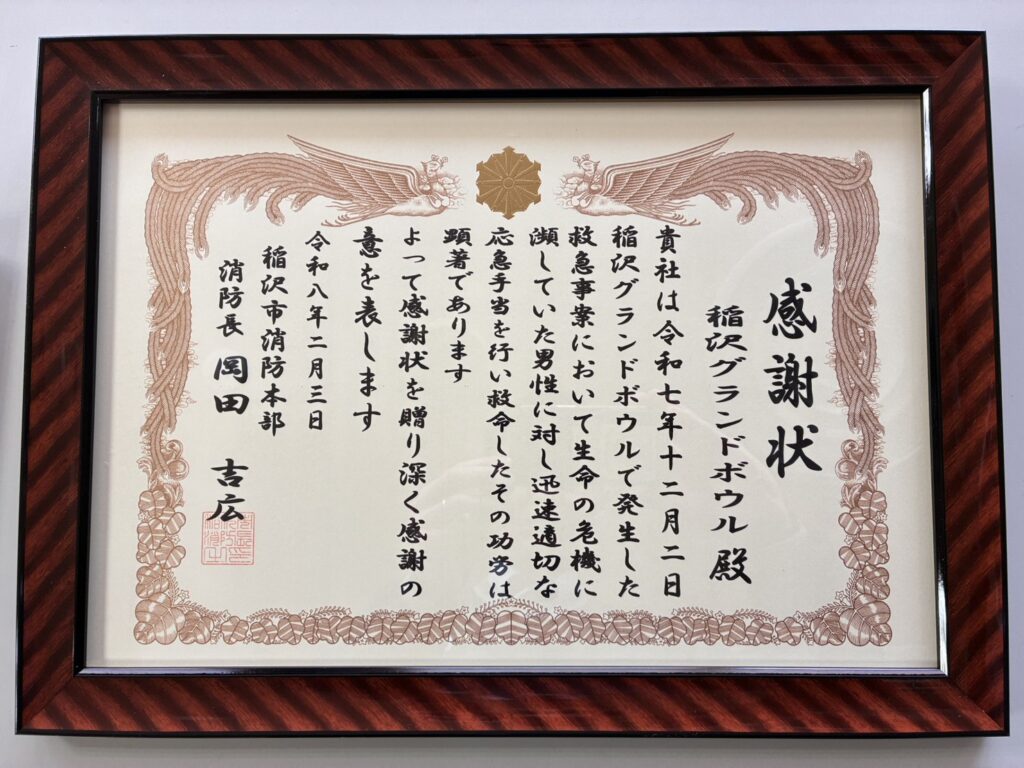 感謝状
稲沢グランドボウル 殿
貴社は令和七年十二月二日
稲沢グランドボウルで発生した
救急事案において生命の危機に
瀕していた男性に対し迅速適切な
応急手当を行い救命したその功労は
顕著であります
よって感謝状を贈り深く感謝の
意を表します
令和八年二月三日
稲沢市消防本部
消防長 岡田 吉広